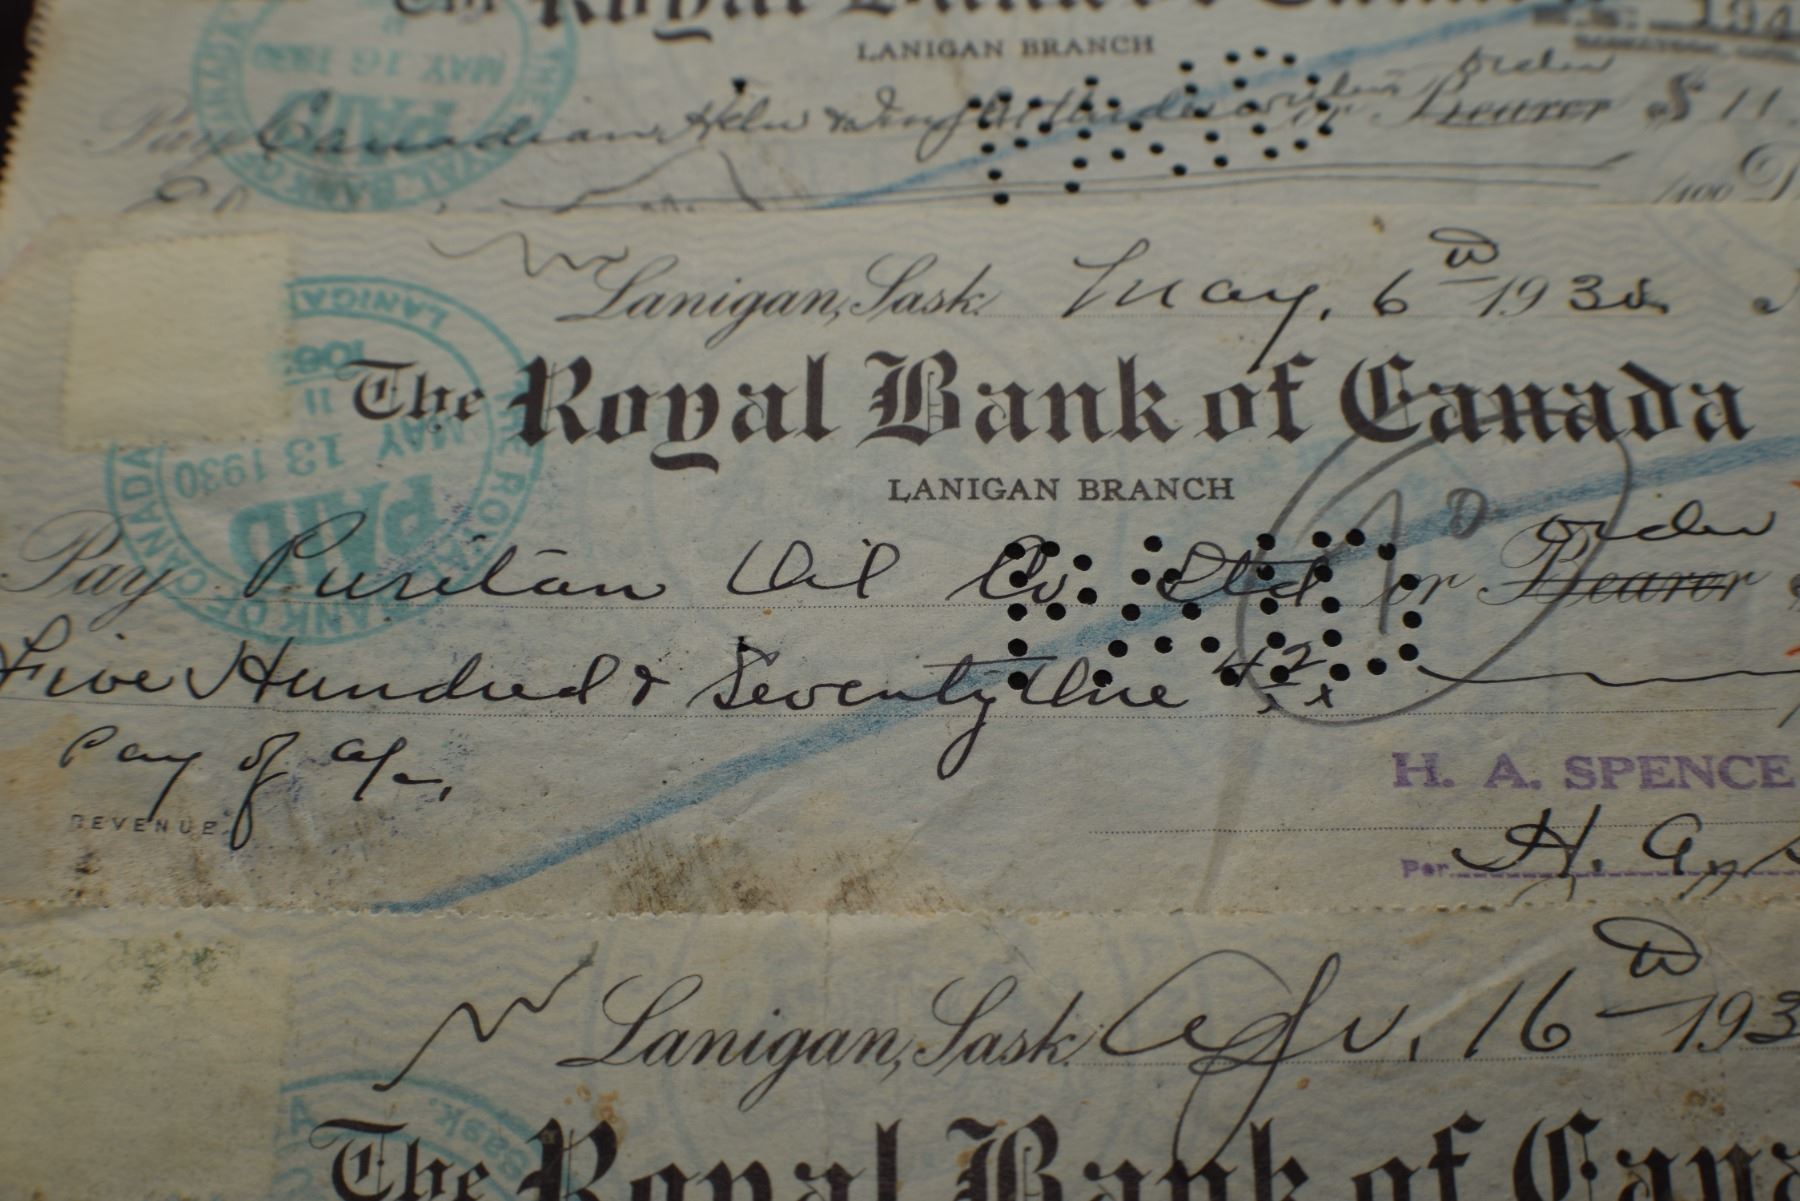 The Royal Bank of Canada
LANIGAN BRANCH
Pay Canadian order
or Bearer $ 11
/100 D
PAID
MAY 16 1930
Lanigan, Sask. May, 6th 1930
The Royal Bank of Canada
LANIGAN BRANCH
LANIGAN
MAY 13 1930
PAID
THE ROYAL BANK OF CANADA
10
order
Pay Puritan Oil Co Ltd or Bearer
Five Hundred & Seventy One 42/xx
Pay of a/c,
REVENUE
H. A. SPENCE
Per H. A.
Lanigan, Sask. Apr. 16th 193
Sask.
The Royal Bank of Cana